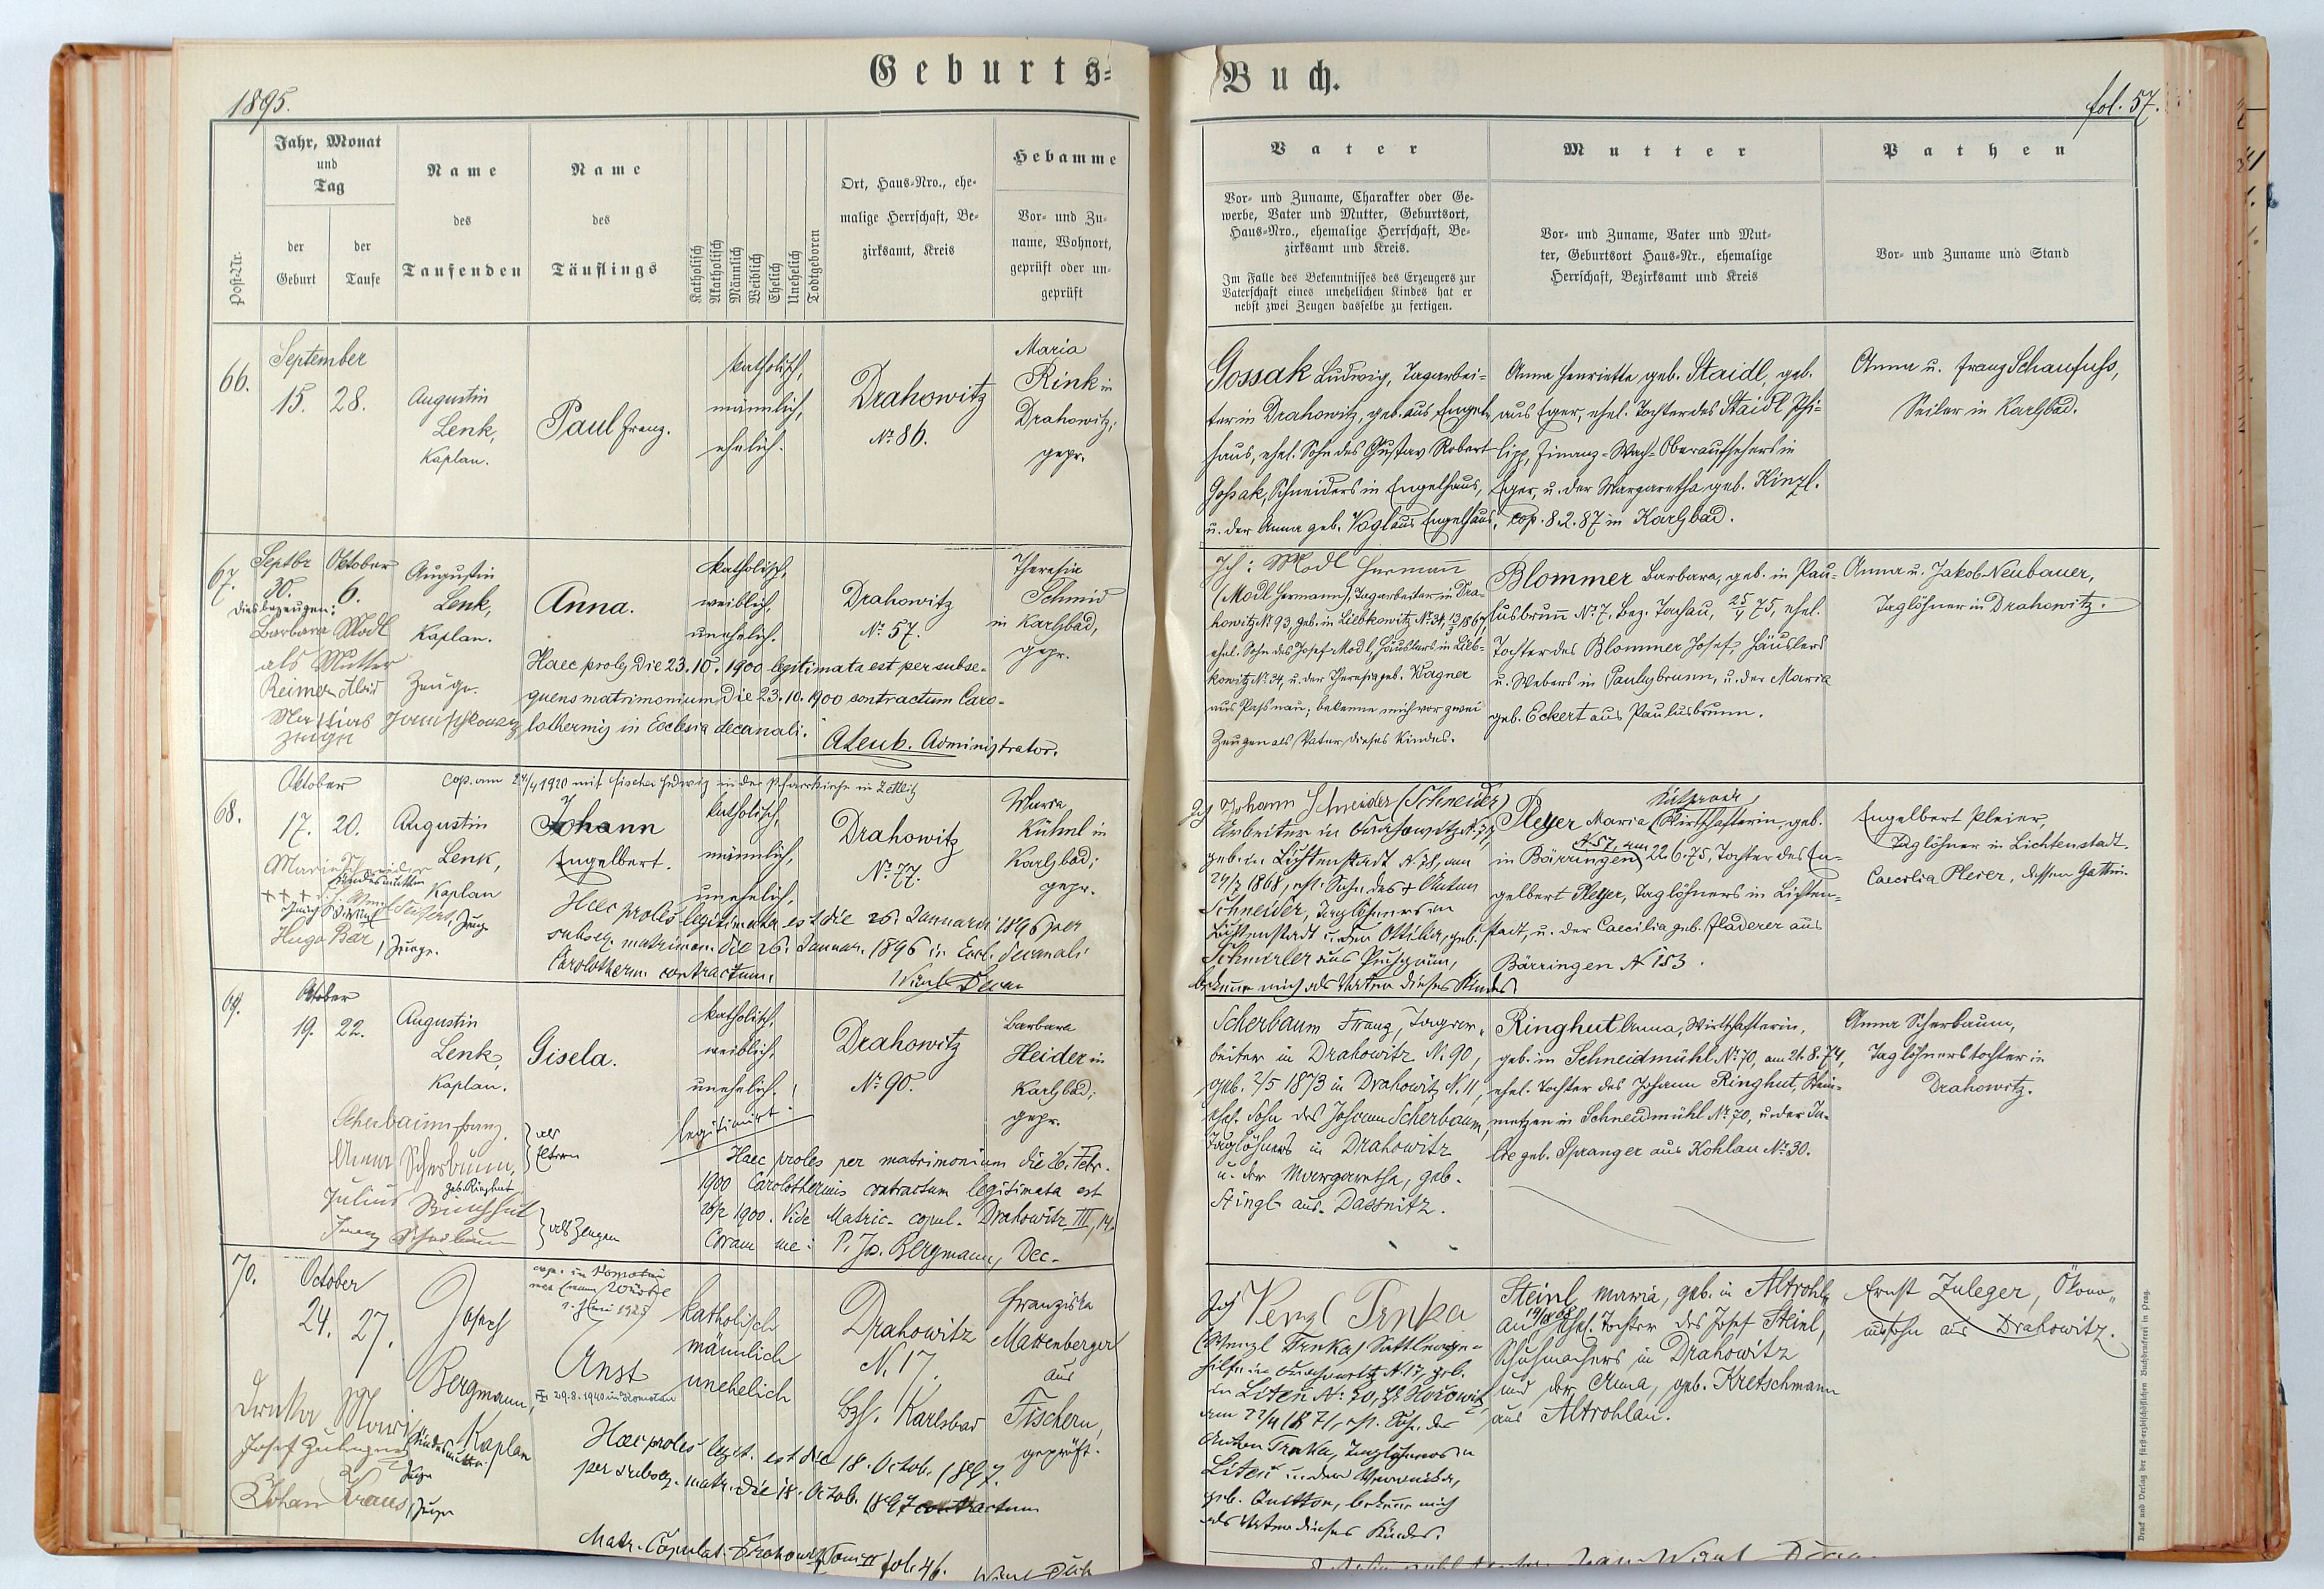 Geburts-
Buch.
1895.
fol. 57.
Post-Nr.
Jahr, Monat
und
Tag
der
Geburt
der
Taufe
Name
des
Taufenden
Name
des
Täuflings
Katholisch
Akatholisch
Männlich
Weiblich
Ehelich
Unehelich
Todtgeboren
Ort, Haus-Nro., ehe-
malige Herrschaft, Be-
zirksamt, Kreis
Hebamme
Vor- und Zu-
name, Wohnort,
geprüft oder un-
geprüft
Vater
Vor- und Zuname, Charakter oder Ge-
werbe, Vater und Mutter, Geburtsort,
Haus-Nro., ehemalige Herrschaft, Be-
zirksamt und Kreis.
Im Falle des Bekenntnisses des Erzeugers zur
Vaterschaft eines unehelichen Kindes hat er
nebst zwei Zeugen dasselbe zu fertigen.
Mutter
Vor- und Zuname, Vater und Mut-
ter, Geburtsort Haus-Nr., ehemalige
Herrschaft, Bezirksamt und Kreis
Pathen
Vor- und Zuname und Stand
66.
September
15. 28.
Augustin
Lenk,
Kaplan.
Paul Franz.
katholisch,
männlich,
ehelich.
Drahowitz
No 86.
Maria
Rink in
Drahowitz,
gepr.
Gossak Ludwig, Tagarbei-
ter in Drahowitz, geb. aus Engel-
haus, ehel. Sohn des Gustav Robert
Gossak, Schneiders in Engelhaus,
u. der Anna geb. Vogl aus Engelhaus,
Anna Henriette, geb. Staidl, geb.
aus Eger, ehel. Tochter des Staidl Phi-
lipp, Finanz-Wach-Oberaufsehers in
Eger, u. der Margaretha geb. Kinzl.
cop. 8.2.87 in Karlsbad.
Anna u. Franz Schaufuss,
Seiler in Karlsbad.
67.
Septbr Oktober
30. 6.
Dies bezeugen:
Barbara Modl
als Mutter
Reimer Alois Zeuge.
Mathias
Zeuge
Augustin
Lenk,
Kaplan.
Anna.
katholisch,
weiblich,
unehelich.
Drahowitz
No 57.
Theresia
Schmid
in Karlsbad,
gepr.
Haec proles die 23.10.1900 legitimata est per subse-
quens matrimonium, die 23.10.1900 contractum Caro-
lothermis in Ecclesia decanali.
ALenk. Administrator.
Ich: Modl Hermann
(Modl Hermann), Tagarbeiter in Dra-
howitz No 93, geb. in Liebkowitz No 34, 13/3 1867,
ehel. Sohn des Josef Modl, Häuslers in Lieb-
kowitz No 34, u. der Theresia geb. Wagner
aus Passnau, bekenne mich vor zwei
Zeugen als Vater dieses Kindes.
Blommer Barbara, geb. in Pau-
lusbrunn No 7, Bez. Tachau, 25/4 75, ehel.
Tochter des Blommer Josef, Häuslers
u. Webers in Paulusbrunn, u. der Maria
geb. Eckert aus Paulusbrunn.
Anna u. Jakob Neubauer,
Taglöhner in Drahowitz.
68.
Oktober
17. 20.
cop. am 24/4 1920 mit Fischer Hedwig in der Pfarrkirche in Zettlitz
Augustin
Lenk,
Kaplan
Johann
Engelbert.
katholisch,
männlich,
unehelich,
Drahowitz
No 77.
Maria
Kühnl in
Karlsbad;
gepr.
Maria Schneider
Kindesmutter
Hugo Bär, Zeuge.
Haec proles legitimata est die 26. Januarii 1896 per
subseq. matrimon. die 26. Januar. 1896 in Eccl. decanali
Carolotherm. contractum.
Ich Johann Schneider (Schneider)
Arbeiter in Drahowitz N. 77,
geb. in Lichtenstadt N. 78, am
24/7 1868, ehl. Sohn des + Anton
Schneider, Taglöhners in
Lichtenstadt u. der Ottilia, geb.
bekenne mich als Vater dieses Kindes.
Pleyer Maria, Wirthschafterin, geb.
in Bärringen N. 57, am 22.6.75, Tochter des En-
gelbert Pleyer, Taglöhners in Lichten-
stadt, u. der Caecilia geb. Fladerer aus
Bärringen N 153.
Engelbert Pleier,
Taglöhner in Lichtenstadt.
Caecilia Pleier, dessen Gattin.
69.
Oktober
19. 22.
Augustin
Lenk,
Kaplan.
Gisela.
katholisch,
weiblich,
unehelich.
legitimirt.
Drahowitz
No 90.
Barbara
Heider in
Karlsbad;
gepr.
Scherbaum Franz.
Anna Scherbaum,
geb. Ringhut
als
Eltern
Julius Ringhut
als Zeugen
Haec proles per matrimonium die 26. Febr.
1900 Carolothermis contractum legitimata est
26/2 1900. Vide Matric. copul. Drahowitz III, 14.
Coram me: P. Jos. Bergmann, Dec.
Scherbaum Franz, Tagar-
beiter in Drahowitz N. 90,
geb. 2/5 1873 in Drahowitz N. 11,
ehel. Sohn des Johann Scherbaum,
Taglöhners in Drahowitz
u. der Margaretha, geb.
Stingl aus Dassnitz.
Ringhut Anna, Wirthschafterin,
geb. in Schneidmühl No 70, am 21.8.74,
ehel. Tochter des Johann Ringhut, Stein-
metzen in Schneidmühl No 70, u. der Ju-
lie geb. Spranger aus Kohlau No 30.
Anna Scherbaum,
Taglöhnerstochter in
Drahowitz.
70.
October
24. 27.
Josef
Bergmann,
Kaplan
cop. in Komotau
1925
Ernst
+ 29.8.1940 in Komotau
katholisch
männlich
unehelich
Drahowitz
N. 17.
Bzk. Karlsbad
Franziska
Mattenberger
aus
Fischern,
geprüft.
Trnka Marie
Kindesmutter
Josef Zuleger
Zeuge
Johan Kraus, Zeuge
Haec proles legit. est die 18. Octob. 1897
per subseq. matr. die 18. Octob. 1897 contractum
Matr. Copulat. Drahowitz Tom II fol. 46.
Ich Venzl Trnka
(Wenzl Trnka) Sattlerge-
hilfe in Drahowitz N. 17, geb.
in Liteň N. 70, Bz Hořowitz,
am 22/4 1871, ehl. Sohn des
Anton Trnka, Taglöhners in
Liteň u. der Veronika,
geb. Quitton, bekenne mich
als Vater dieses Kindes.
Steinl Maria, geb. in Altrohlau
19/8 68 ehel. Tochter des Josef Steinl,
Schuhmachers in Drahowitz
und der Anna, geb. Kretschmann
aus Altrohlau.
Ernst Zuleger, Ökono-
miesohn aus Drahowitz.
Druck und Verlag der fürst-erzbischöflichen Buchdruckerei in Prag.